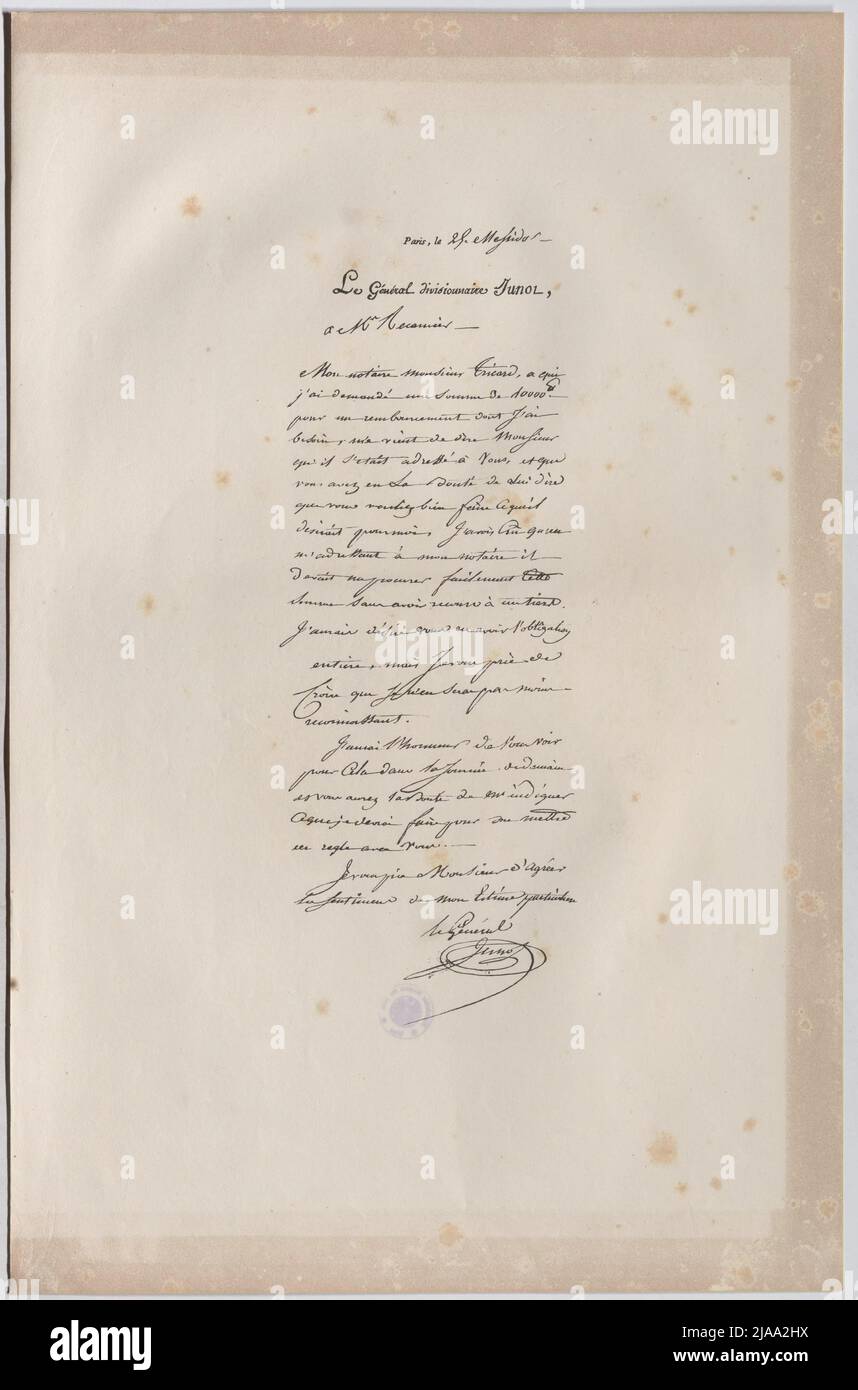 Paris, le 25. Messidor
Le Général divisionnaire Junot,
a Mr Recamier
Mon notaire monsieur Tricard, a qui
j'ai demandé une somme de 10000
pour un remboursement dont j'ai
besoin, me vient de dire Monsieur
qu'il s'etait adressé à vous, et que
vous avez eu la bonté de lui dire
que vous vouliez bien faire ce qu'il
désirait pour moi. J'avois crû qu'en
m'adressant à mon notaire il
devait me procurer facilement cette
somme sans avoir recours à un tiers.
J'aurais désiré vous en avoir l'obligation
entière, mais je vous prie de
croire que je n'en serai pas moins
reconnaissant.
J'aurai l'honneur de vous voir
pour cela dans la journée de demain
et vous aurez la bonté de m'indiquer
ce que je devrai faire pour me mettre
en regle avec vous.
Je vous prie Monsieur d'agréer
les sentimens de mon Estime particulière
le Général
Junot
alamy
alamy
Image ID: 2JAA2HX
www.alamy.com